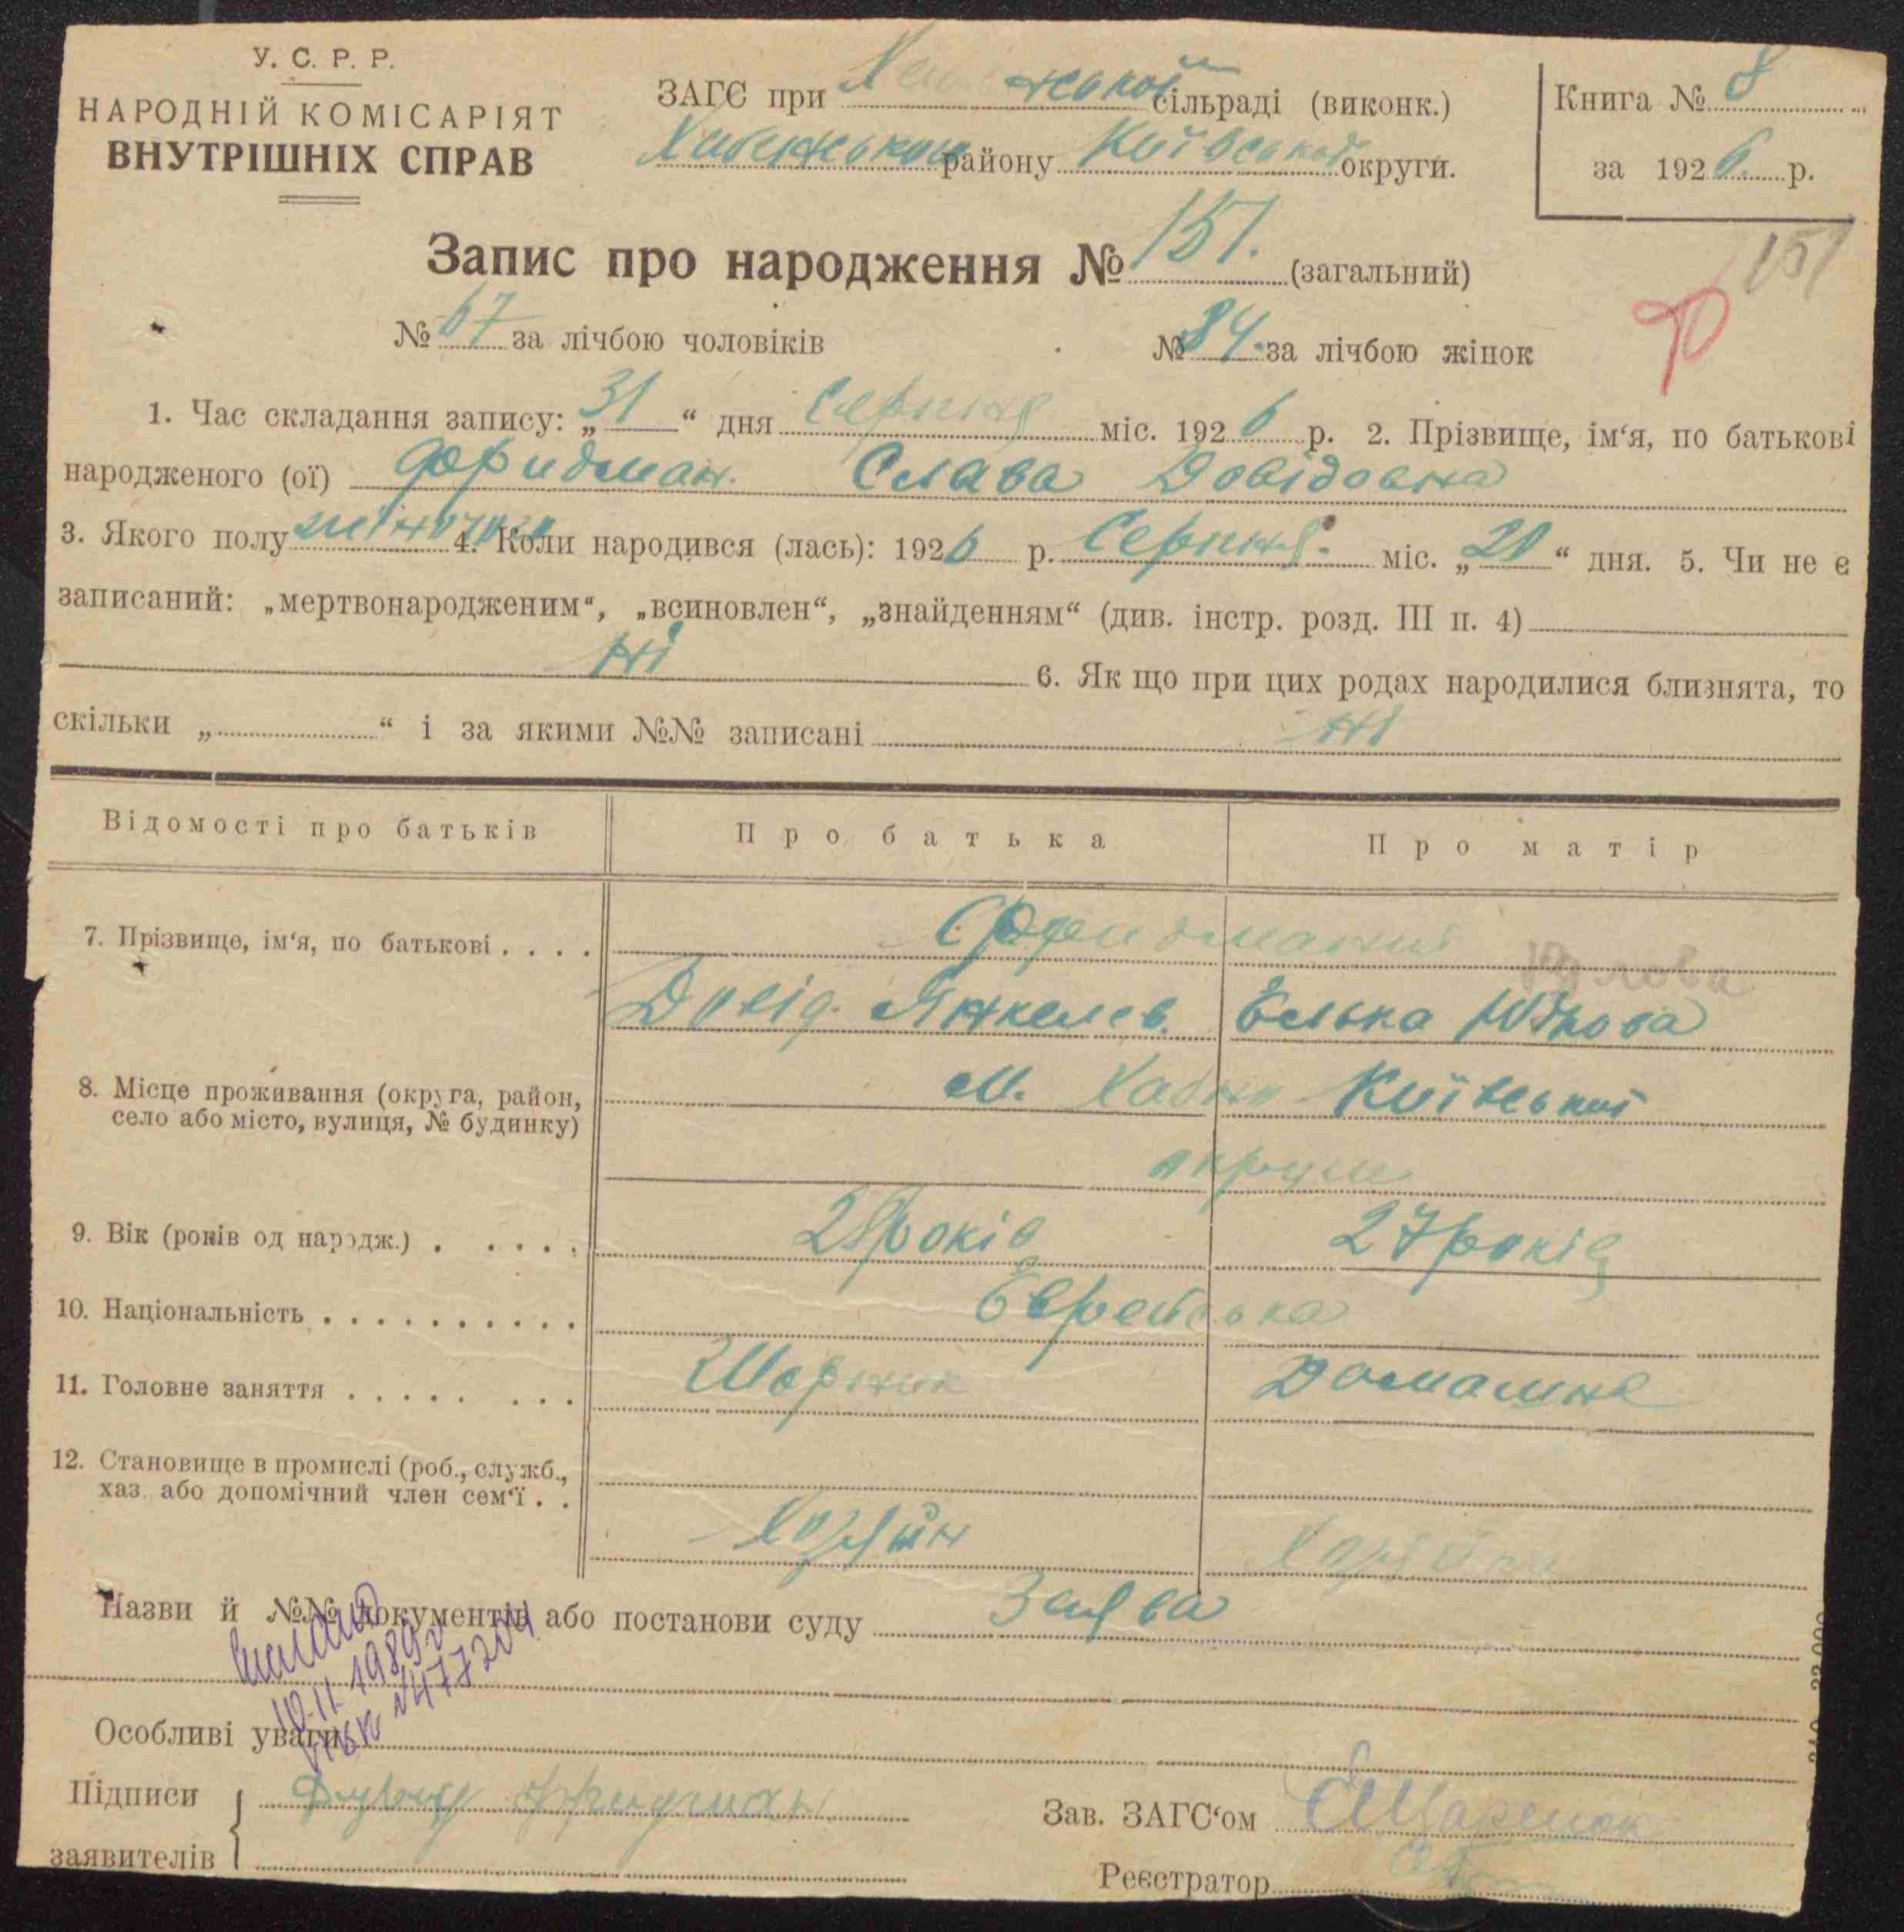 У. С. Р. Р.
НАРОДНІЙ КОМІСАРІЯТ
ВНУТРІШНІХ СПРАВ
ЗАГС при сільраді (виконк.)
Хабенського району Київської округи.
Книга № 8
за 1926 р.
Запис про народження № 151. (загальний)
151
№ 67 за лічбою чоловіків № 84. за лічбою жінок
1. Час складання запису: „31“ дня Серпня міс. 1926 р. 2. Прізвище, ім‘я, по батькові
народженого (ої) Фридман. Слава Довідовна
3. Якого полу жіночого 4. Коли народився (лась): 1926 р. Серпня. міс. „20“ дня. 5. Чи не є
записаний: „мертвонародженим“, „всиновлен“, „знайденням“ (див. інстр. розд. III п. 4)
ні 6. Як що при цих родах народилися близнята, то
скільки „ “ і за якими №№ записані ні
Відомості про батьків Про батька Про матір
7. Прізвище, ім‘я, по батькові
Довід. Янкелев. Елька
8. Місце проживання (округа, район,
село або місто, вулиця, № будинку)
м. Хабно Київської
округи
9. Вік (років од народж.) 28 років 27 років
10. Національність Єврейська
11. Головне заняття Шорник Домашнє
12. Становище в промислі (роб., служб.,
хаз. або допомічний член сем‘ї
Хозяїн Хозяйка
Назви й №№ документів або постанови суду Заява
10.11.1989
№477204
Особливі уваги
Підписи
заявителів
Зав. ЗАГС‘ом
Реєстратор